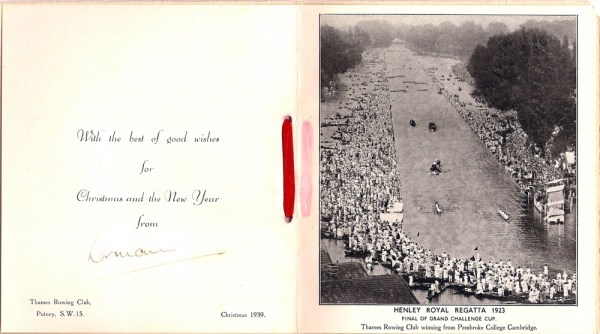 With the best of good wishes
for
Christmas and the New Year
from
Thames Rowing Club,
Putney, S.W. 15.
Christmas 1939.
HENLEY ROYAL REGATTA 1923
FINAL OF GRAND CHALLENGE CUP.
Thames Rowing Club winning from Pembroke College Cambridge.